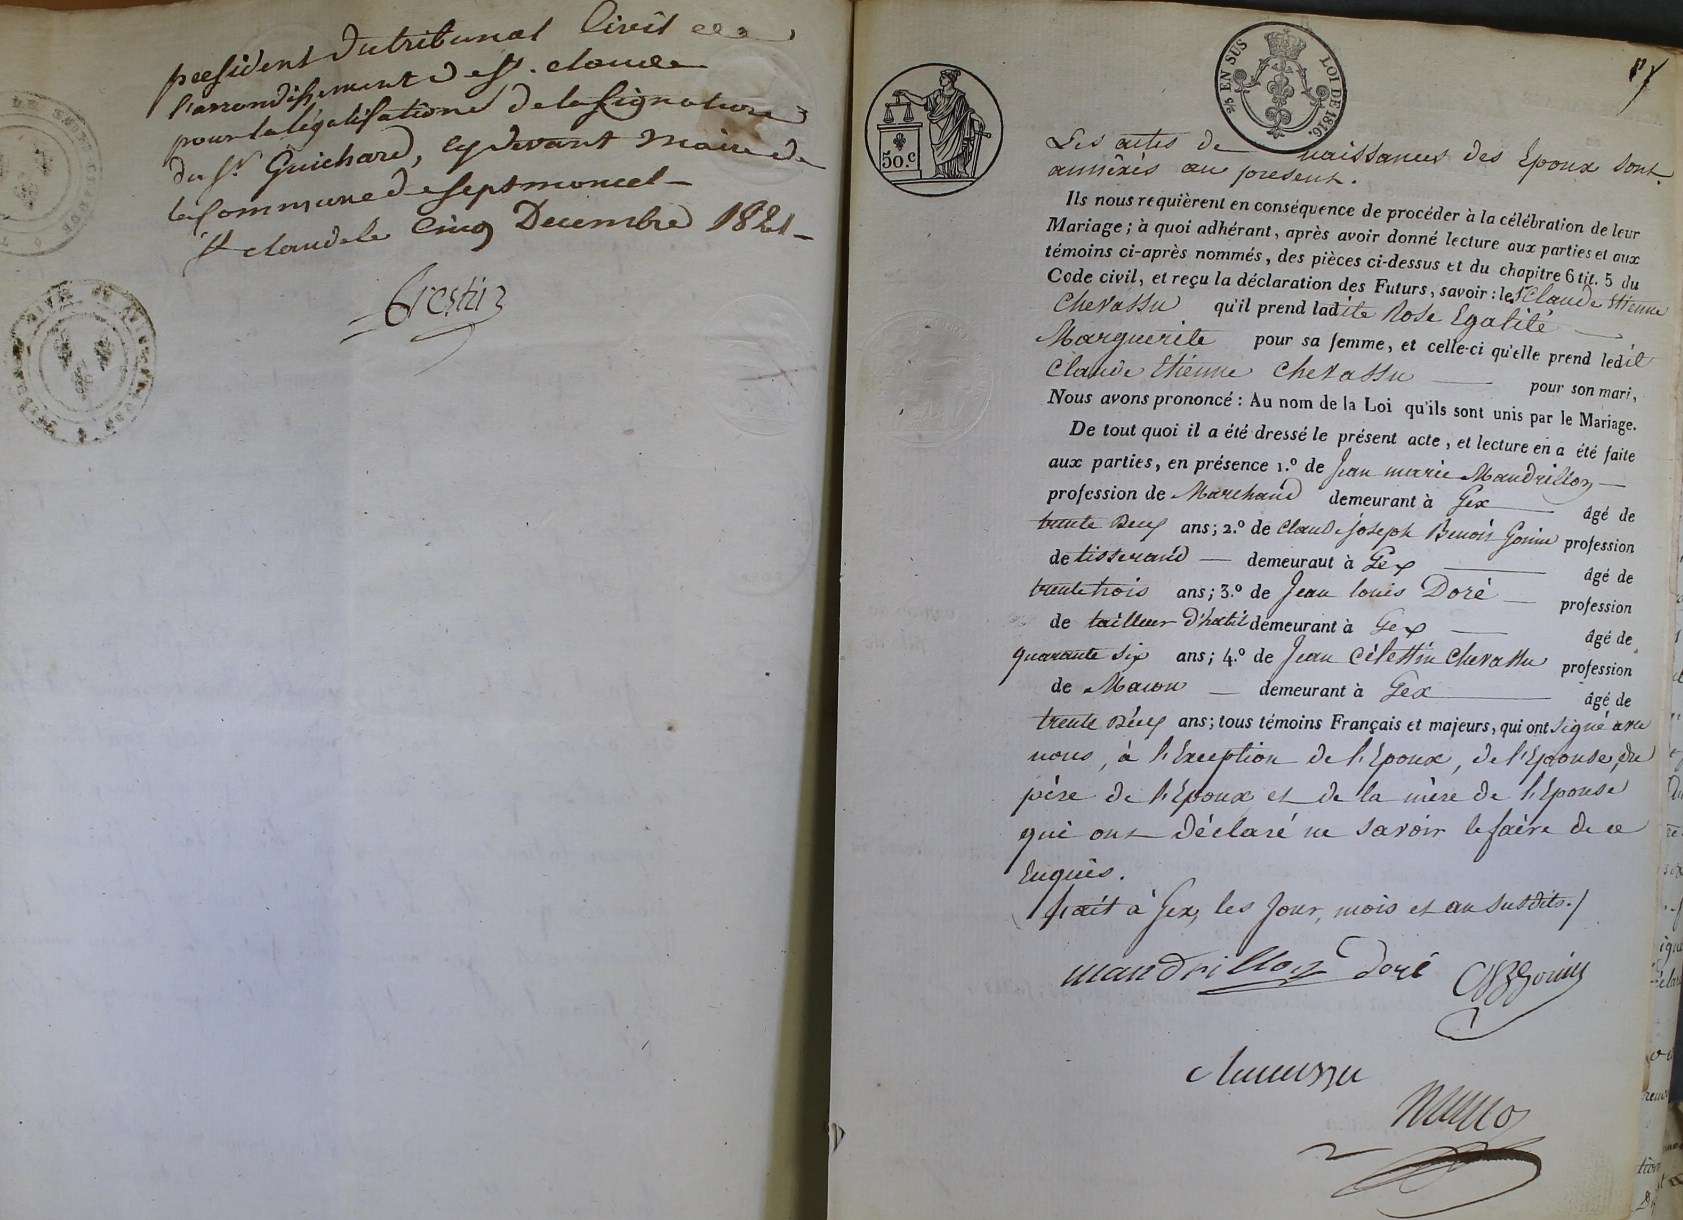 president du tribunal Civil de
l'arrondissement de St. claude
pour la légalisation de la signature
du Sr. Guichard, cy devant maire de
la Commune de septmoncel
St claude le Cinq Decembre 1821
Crestin
25 EN SUS LOI DE 1816.
50.c
Les actes de naissances des Epoux sont
annéxés au present.
Ils nous requièrent en conséquence de procéder à la célébration de leur
Mariage ; à quoi adhérant, après avoir donné lecture aux parties et aux
témoins ci-après nommés, des pièces ci-dessus et du chapitre 6 tit. 5 du
Code civil, et reçu la déclaration des Futurs, savoir : le Sr Claude Etienne
Chevassu qu'il prend ladite Rose Egalité
Marguerite pour sa femme, et celle-ci qu'elle prend ledit
Claude Etienne Chevassu pour son mari,
Nous avons prononcé : Au nom de la Loi qu'ils sont unis par le Mariage.
De tout quoi il a été dressé le présent acte, et lecture en a été faite
aux parties, en présence 1.º de Jean marie Mandrillon
profession de Marchand demeurant à Gex âgé de
trente Deux ans ; 2.º de Claude joseph Benoit Gonin profession
de tisserand demeuraut à Gex âgé de
trente trois ans ; 3.º de Jean louis Doré profession
de tailleur d'habit demeurant à Gex âgé de
quarante six ans ; 4.º de Jean Célestin Chevassu profession
de Macon demeurant à Gex âgé de
trente Deux ans ; tous témoins Français et majeurs, qui ont signé avec
nous, à l'Exception de l'Epoux, de l'Epouse, du
père de l'Epoux et de la mère de l'Epouse
qui ont déclaré ne savoir le faire de ce
Enquis.
fait à Gex, les Jour, mois et an susdits.
mandrillon Doré CJBGonin
chevassu